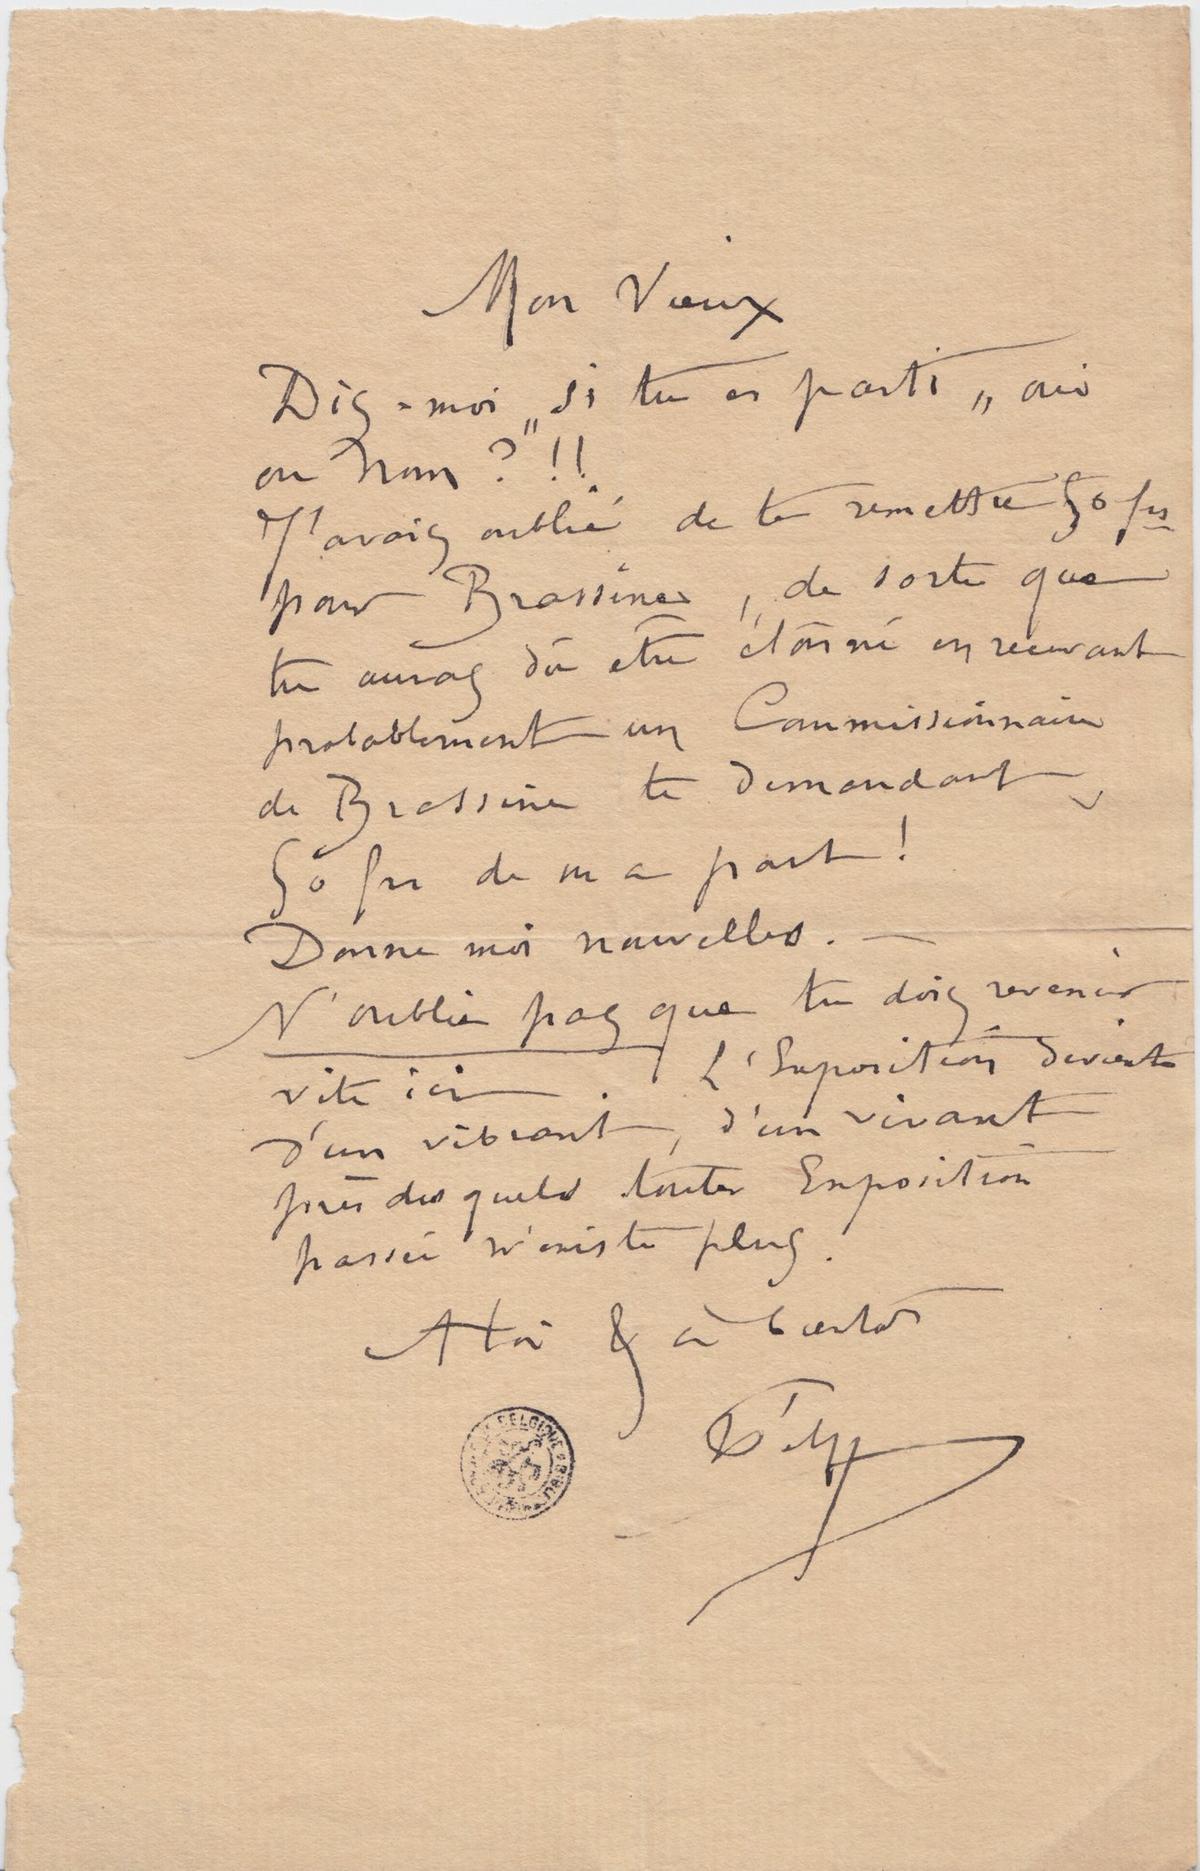 Mon Vieux
Dis-moi „si tu es parti „ oui
ou non ?" !!
J'avais oublié de te remettre 50 frs
pour Brassine, de sorte que
tu auras dû être étonné en recevant
probablement un Commissionnaire
de Brassine te demandant
50 frs de ma part !
Donne moi nouvelles. —
N'oublie pas que tu dois revenir
vite ici. L'Exposition devient
d'un vibrant, d'un vivant
près desquels toutes Exposition
passée n'existe plus.
A toi & à bientôt
BELGIQUE